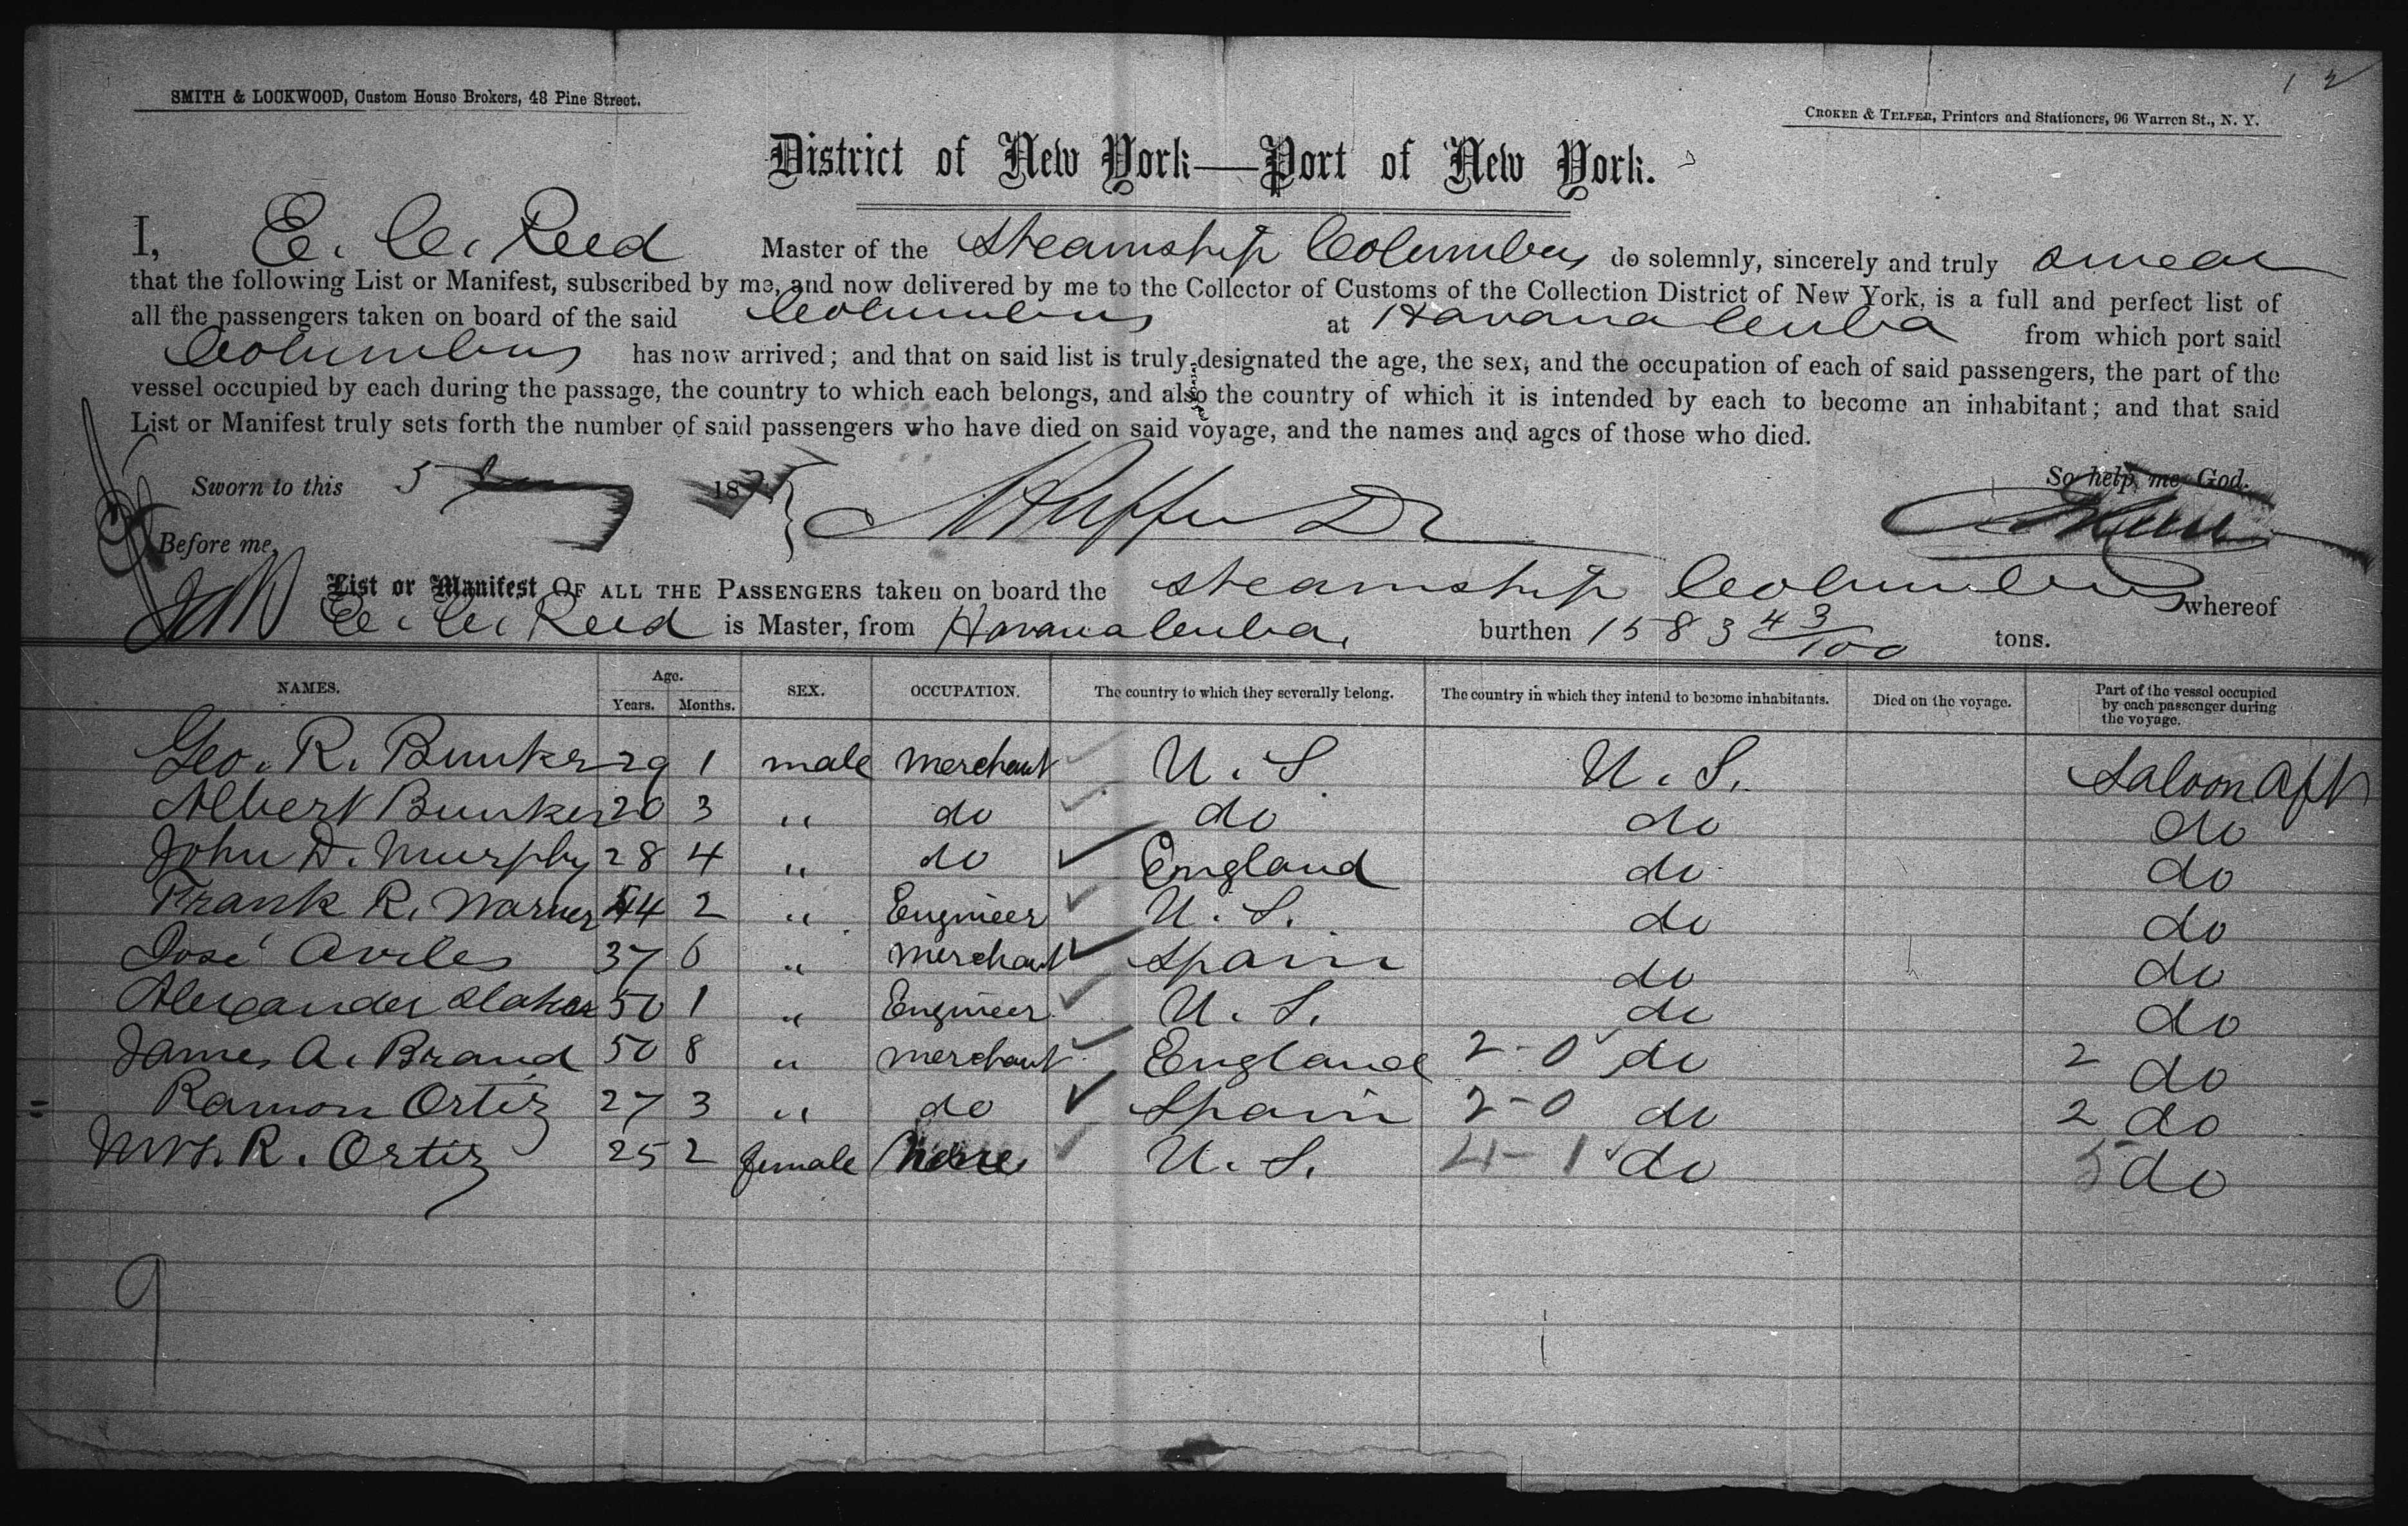 12
SMITH & LOCKWOOD, Custom House Brokers, 48 Pine Street.
CROKER & TELFER, Printers and Stationers, 96 Warren St., N. Y.
District of New York—Port of New York.
I, E. C. Reed Master of the Steamship Columbus do solemnly, sincerely and truly swear
that the following List or Manifest, subscribed by me, and now delivered by me to the Collector of Customs of the Collection District of New York, is a full and perfect list of
all the passengers taken on board of the said Columbus at Havana Cuba from which port said
Columbus has now arrived; and that on said list is truly designated the age, the sex, and the occupation of each of said passengers, the part of the
vessel occupied by each during the passage, the country to which each belongs, and also the country of which it is intended by each to become an inhabitant; and that said
List or Manifest truly sets forth the number of said passengers who have died on said voyage, and the names and ages of those who died.
Sworn to this 5 Jan 187 So help me God.
Before me,
List or Manifest OF ALL THE PASSENGERS taken on board the Steamship Columbus whereof
E. C. Reed is Master, from Havana Cuba, burthen 1583 43/100 tons.
NAMES. Age. Years. Months. SEX. OCCUPATION. The country to which they severally belong. The country in which they intend to become inhabitants. Died on the voyage. Part of the vessel occupied by each passenger during the voyage.
Geo. R. Bunker 29 1 male merchant U. S. U. S. Saloon Aft
Albert Bunker 20 3 " do do do do
John D. Murphy 28 4 " do England do do
Frank R. Warner 44 2 " Engineer U. S. do do
José Aviles 37 6 " merchant Spain do do
Alexander 50 1 " Engineer U. S. do do
James A. Brand 50 8 " merchant England 2-0 do 2 do
= Ramon Ortiz 27 3 " do Spain 2-0 do 2 do
Mrs. R. Ortiz 25 2 female None U. S. 4-1 do 5 do
9